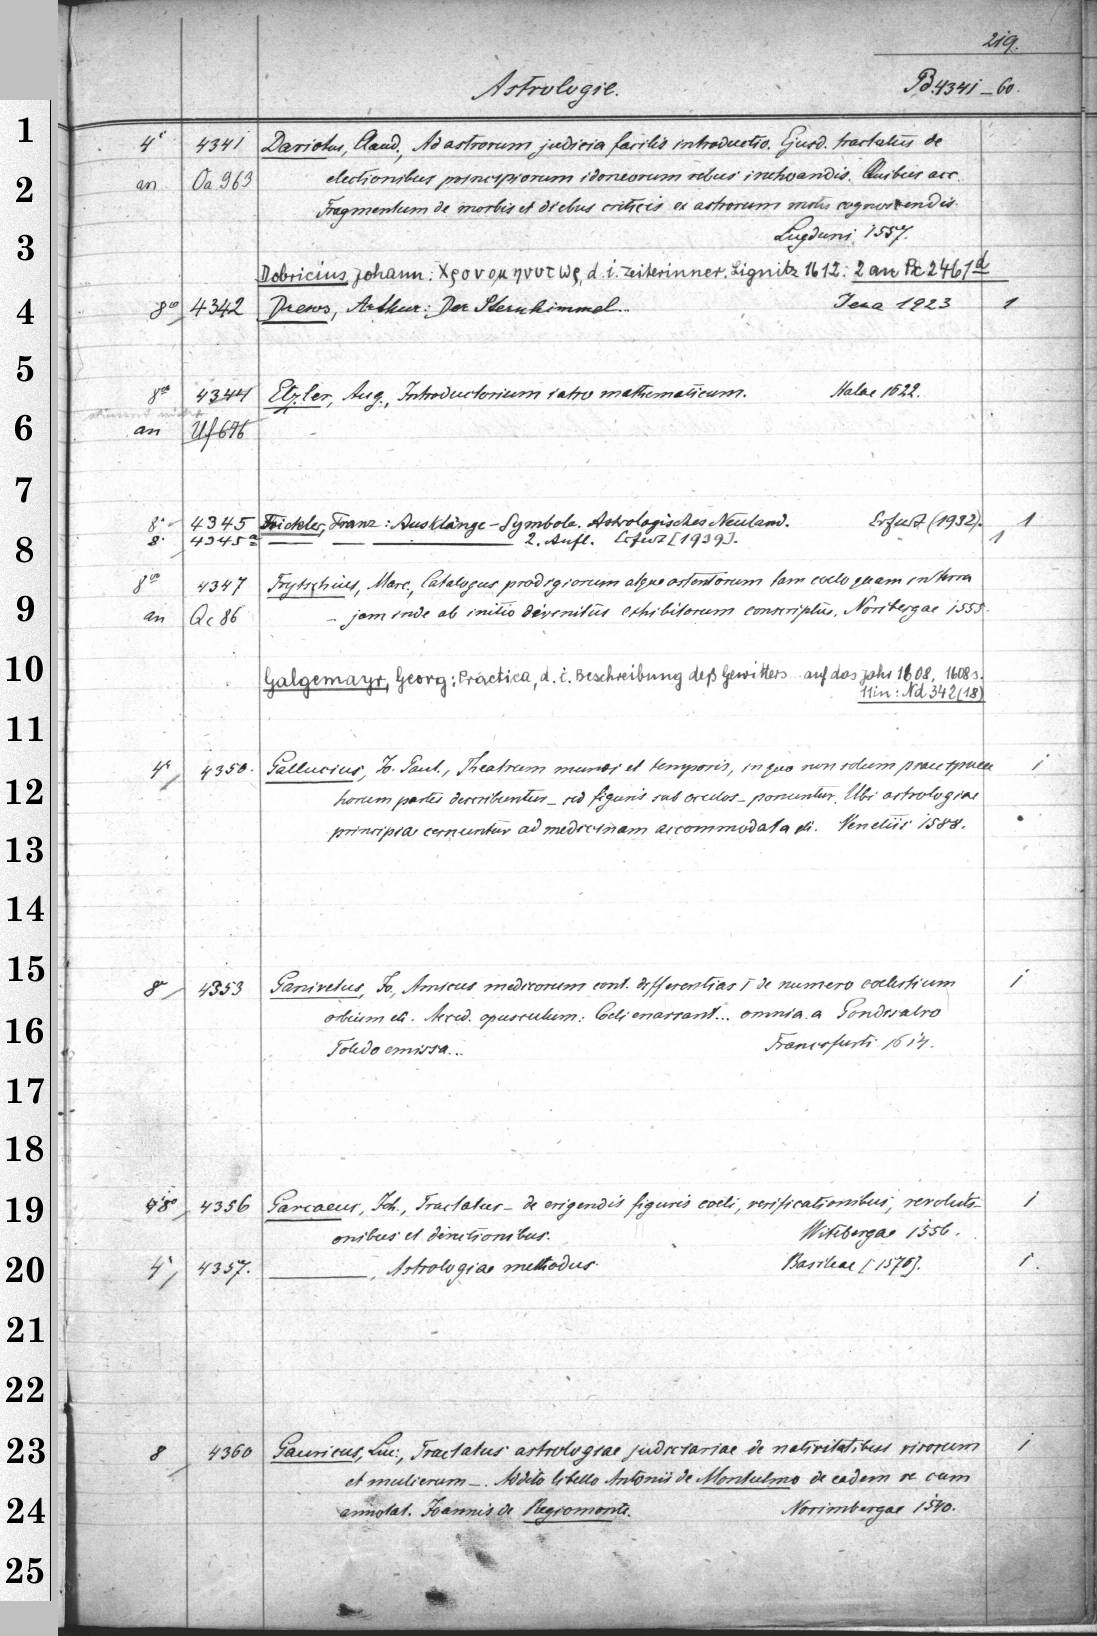 219.
Astrologie. Pd. 4341-60.
1
4° 4341 Dariotus, Claud., Ad astrorum judicia facilis introductio. Ejusd. tractatus de
2
an Oa 963 electionibus principiorum idoneorum rebus inchoandis. Quibus acc.
fragmentum de morbis et diebus criticis ex astrorum motu cognoscendis.
3
Lugduni 1557.
Dobricius, Johann: Χρονομηνυτως, d. i. Zeiterinner. Lignitz 1612: 2 an Pc 2461 a
4
8° 4342 Drews, Arthur: Der Sternhimmel... Jena 1923 1
5
8° 4344 Etzler, Aug., Introductorium iatro mathematicum. Halae 1622.
6
an Uf 676
7
8° 4345 Frickler, Franz: Ausklänge-Symbole. Astrologisches Neuland. Erfurt (1932). 1
8
8° 4345 a — — — 2. Aufl. Erfurt [1939]. 1
8° 4347 Frytschius, Marc., Catalogus prodigiorum atque ostentorum tam coelo quam in terra
9
an Qc 86 - jam inde ab initio divinitus exhibitorum conscriptus. Noribergae 1555.
10
Galgemayr, Georg: Practica, d. i. Beschreibung deß Gewitters auf das Jahr 1608. 1608 s.
11 in: Nd 342 (18)
11
12
4° 4350. Gallucius, Jo. Paul., Theatrum mundi et temporis, in quo non solum praecipuae 1
horum partes describuntur - sed figuris sub oculos - ponuntur. Ubi astrologiae
13
principia cernuntur ad medicinam accommodata etc. Venetiis 1588.
14
15
8° 4353 Ganivetus, Jo., Amicus medicorum cont. differentias I de numero coelestium 1
16
orbium etc. Acced. opusculum: Coeli enarrant... omnia a Gondisalvo
Toledo emissa... Francofurti 1614.
17
18
19
8° 4356 Garcaeus, Joh., Tractatus - de erigendis figuris coeli, verificationibus, revoluti- 1
onibus et directionibus. Witebergae 1556.
20
4° 4357. ———, Astrologiae methodus. Basileae [1576]. 1.
21
22
23
8 4360 Gauricus, Luc., Tractatus astrologiae judiciariae de nativitatibus virorum 1
et mulierum -. Addito libello Antonii de Montulmo de eadem re cum
24
annotat. Joannis de Regiomonte. Norimbergae 1540.
25